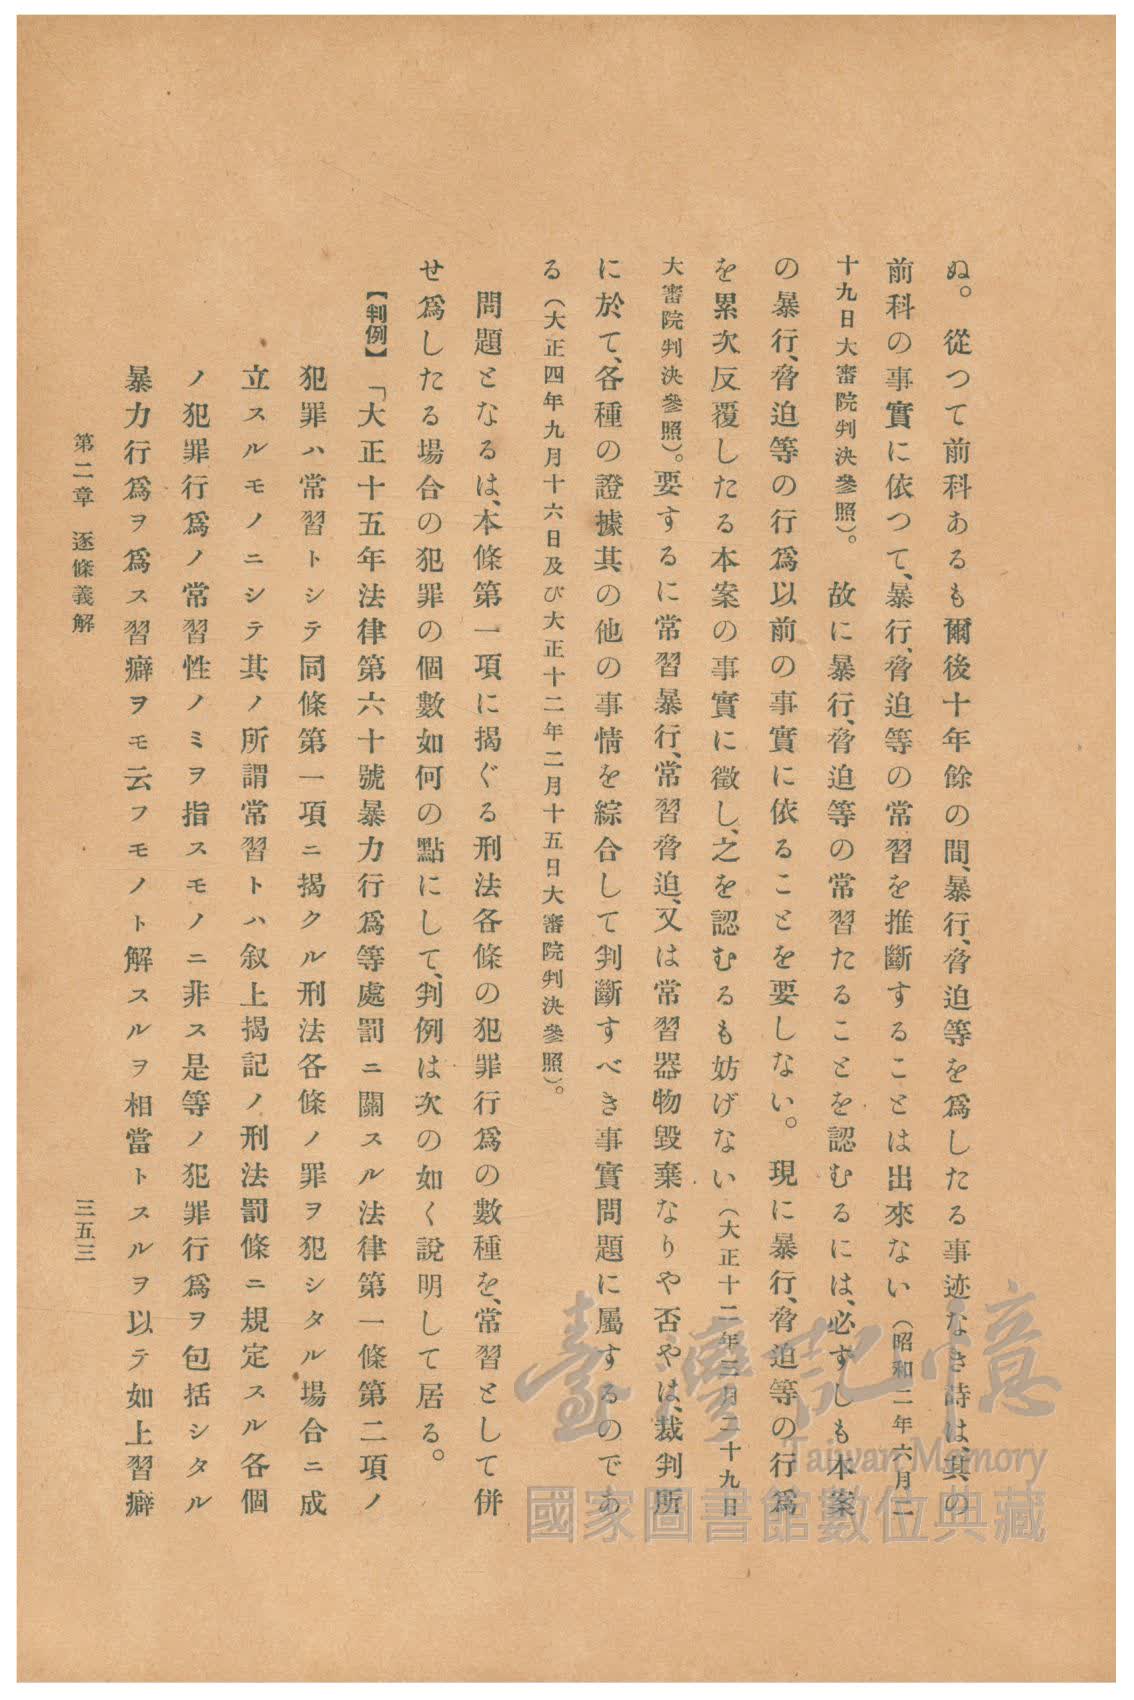 ぬ。從つて前科あるも爾後十年餘の間、暴行、脅迫等を爲したる事迹なき時は、其の
前科の事實に依つて、暴行、脅迫等の常習を推斷することは出來ない（昭和二年六月二
十九日大審院判決參照）。故に暴行、脅迫等の常習たることを認むるには、必ずしも本案
の暴行、脅迫等の行爲以前の事實に依ることを要しない。現に暴行、脅迫等の行爲
を累次反覆したる本案の事實に徵し、之を認むるも妨げない（大正十二年三月二十九日
大審院判決參照）。要するに常習暴行、常習脅迫、又は常習器物毀棄なりや否やは、裁判所
に於て、各種の證據其の他の事情を綜合して判斷すべき事實問題に屬するのであ
る（大正四年九月十六日及び大正十二年二月十五日大審院判決參照）。
問題となるは、本條第一項に揭ぐる刑法各條の犯罪行爲の數種を、常習として併
せ爲したる場合の犯罪の個數如何の點にして、判例は次の如く說明して居る。
【判例】「大正十五年法律第六十號暴力行爲等處罰ニ關スル法律第一條第二項ノ
犯罪ハ常習トシテ同條第一項ニ揭クル刑法各條ノ罪ヲ犯シタル場合ニ成
立スルモノニシテ其ノ所謂常習トハ叙上揭記ノ刑法罰條ニ規定スル各個
ノ犯罪行爲ノ常習性ノミヲ指スモノニ非ス是等ノ犯罪行爲ヲ包括シタル
暴力行爲ヲ爲ス習癖ヲモ云フモノト解スルヲ相當トスルヲ以テ如上習癖
第二章 逐條義解
三五三
臺灣記憶
Taiwan Memory
國家圖書館數位典藏